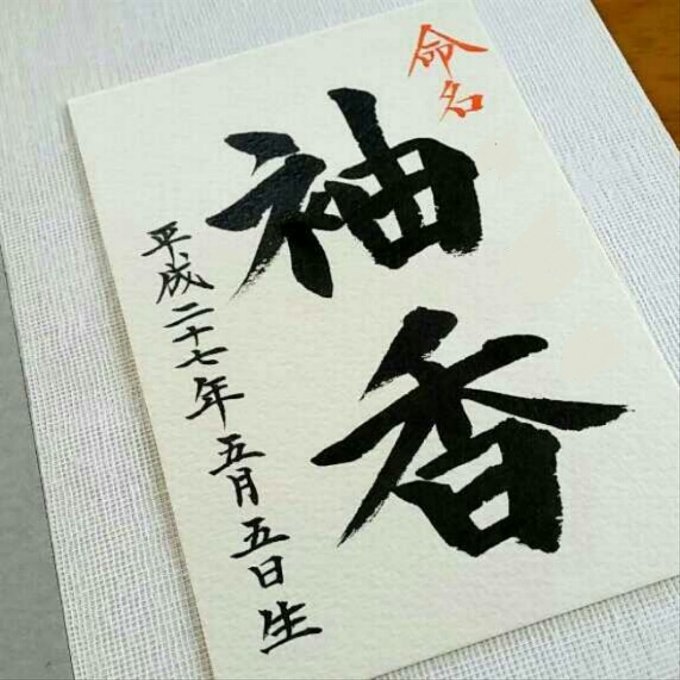 命名
袖香
平成二十七年五月五日生